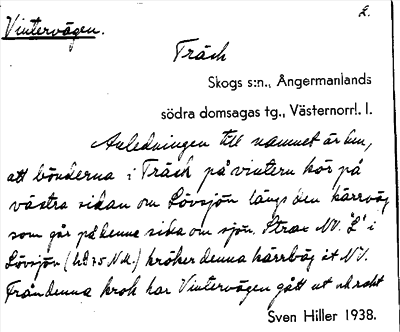 Vintervägen. 2.
Träsk
Skogs s:n., Ångermanlands
södra domsagas tg., Västernorrl. l.
Anledningen till namnet är den,
att bönderna i Träsk på vintern kör på
västra sidan om Lövsjön längs den kärrväg
som går på denna sida om sjön. Strax NV. "L" i
Lövsjön (bl 75 N.d.) kröker denna kärrväg åt NV.
Från denna krok har Vintervägen gått ut
Sven Hiller 1938.